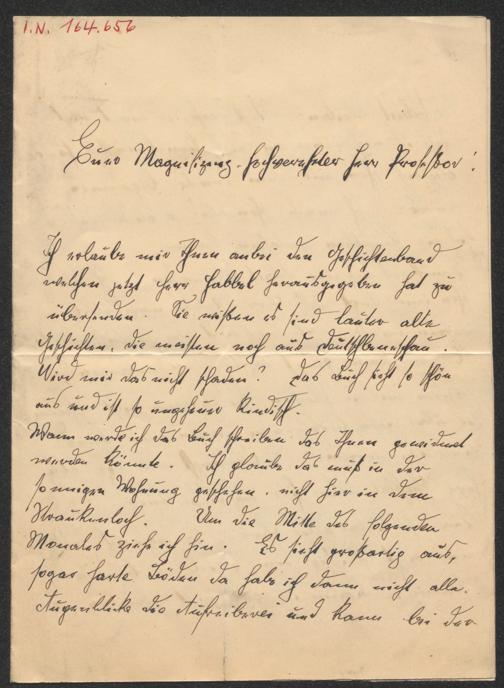 I.N. 164.656
Euer Magnifizenz, hochverehrter Herr Professor!
Ich erlaube mir Ihnen anbei den Geschichtenband
welchen jetzt Herr Habbel herausgegeben hat zu
übersenden. Sie wißen es sind lauter alte
Geschichten, die meisten noch aus Deutschbeneschau.
Wird mir das nicht schaden? Das Buch sieht so schön
aus und ist so ungeheuer kindisch.
Wann werde ich das Buch schreiben das Ihnen gewidmet
werden könnte. Ich glaube das muß in der
sonnigen Wohnung geschehen, nicht hier in dem
Krankenloch. Um die Mitte des folgenden
Monates ziehe ich hin. Es sieht großartig aus,
sogar harte Böden da habe ich dann nicht alle
Augenblicke die Aufreiberei und kann bei der